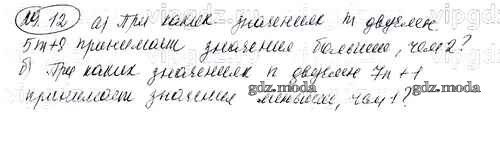 №9.12 а) При каких значениях m двучлен
5m+9 принимает значения большие, чем 2?
б) При каких значениях n двучлен 7n+1
gdz.moda
принимает значения меньшие, чем 1?
gdz.moda